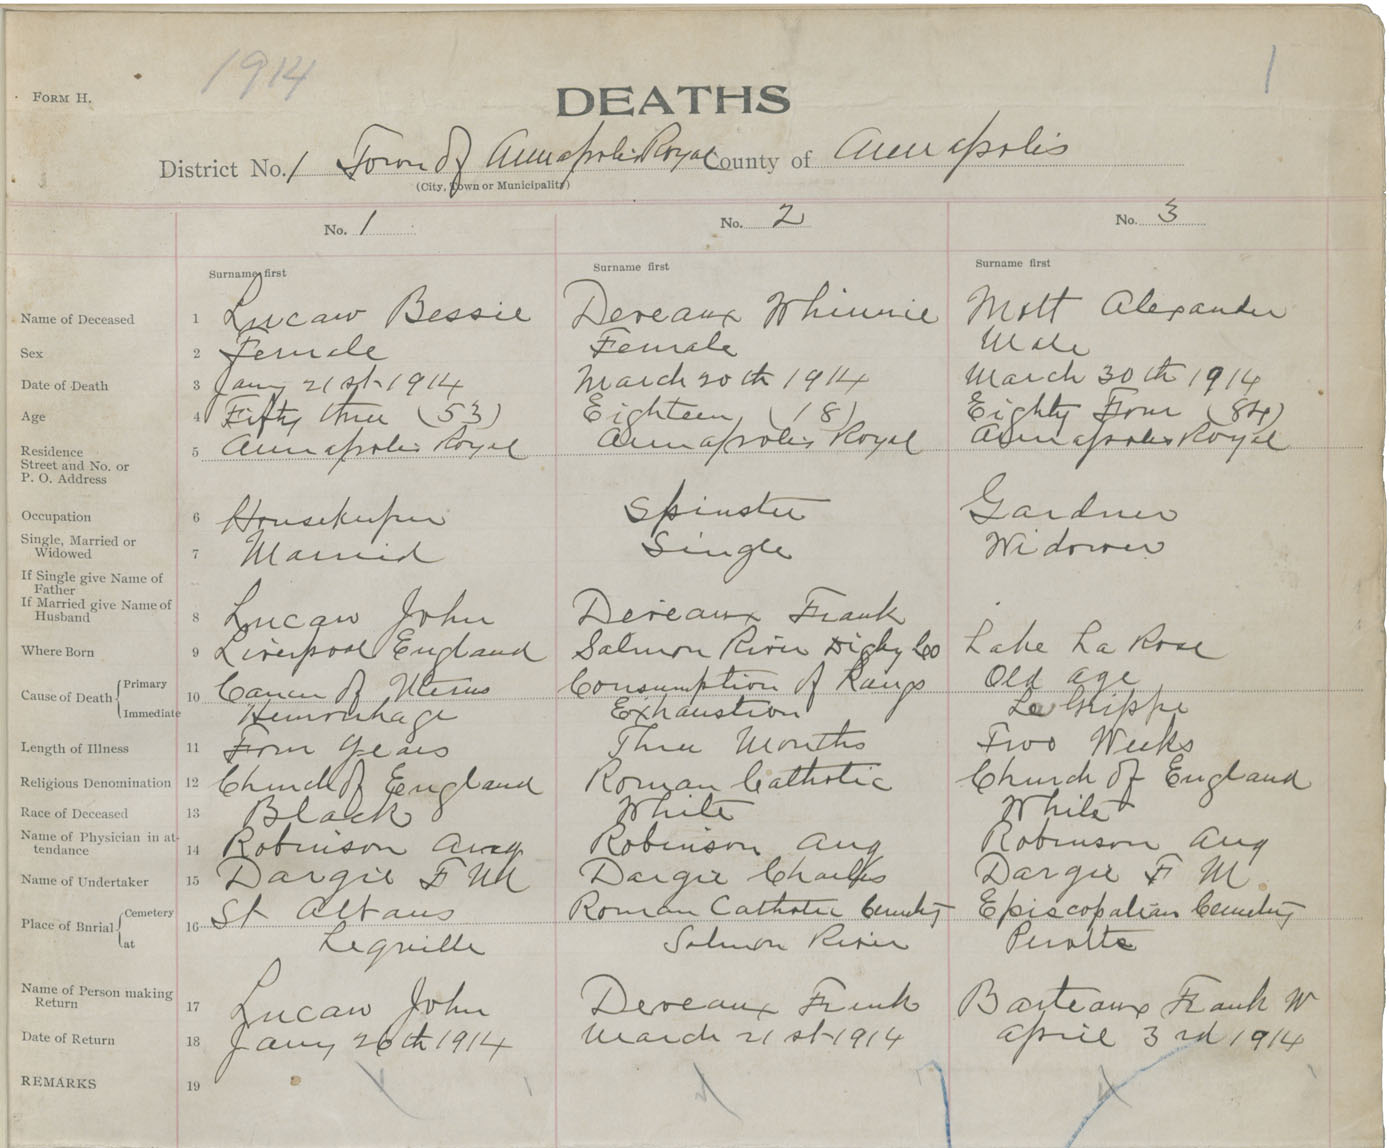 1914
1
FORM H.
DEATHS
District No. 1 Town of Annapolis Royal County of Annapolis
(City, Town or Municipality)
No. 1 No. 2 No. 3
Surname first Surname first Surname first
Name of Deceased 1 Lucaw Bessie Dereaux Whinnie Mott Alexander
Sex 2 Female Female Male
Date of Death 3 Jany 21st 1914 March 20th 1914 March 30th 1914
Age 4 Fifty three (53) Eighteen (18) Eighty Four (84)
Residence Street and No. or P. O. Address 5 Annapolis Royal Annapolis Royal Annapolis Royal
Occupation 6 Housekeeper Spinster Gardner
Single, Married or Widowed 7 Married Single Widower
If Single give Name of Father
If Married give Name of Husband 8 Lucaw John Dereaux Frank
Where Born 9 Liverpool England Salmon River Digby Co Lake La Rose
Cause of Death Primary 10 Cancer of Uterus Consumption of Lungs Old age
Immediate Hemorrhage Exhaustion La Grippe
Length of Illness 11 Four Years Three Months Two Weeks
Religious Denomination 12 Church of England Roman Catholic Church of England
Race of Deceased 13 Black White White
Name of Physician in attendance 14 Robinson Aug Robinson Aug Robinson Aug
Name of Undertaker 15 Dargie F M Dargie Charles Dargie F M
Place of Burial Cemetery 16 St Albans Roman Catholic Cemetery Episcopalian Cemetery
at Leqville Salmon River Perotte
Name of Person making Return 17 Lucaw John Dereaux Frank Barteaux Frank W
Date of Return 18 Jany 26th 1914 March 21st 1914 April 3rd 1914
REMARKS 19